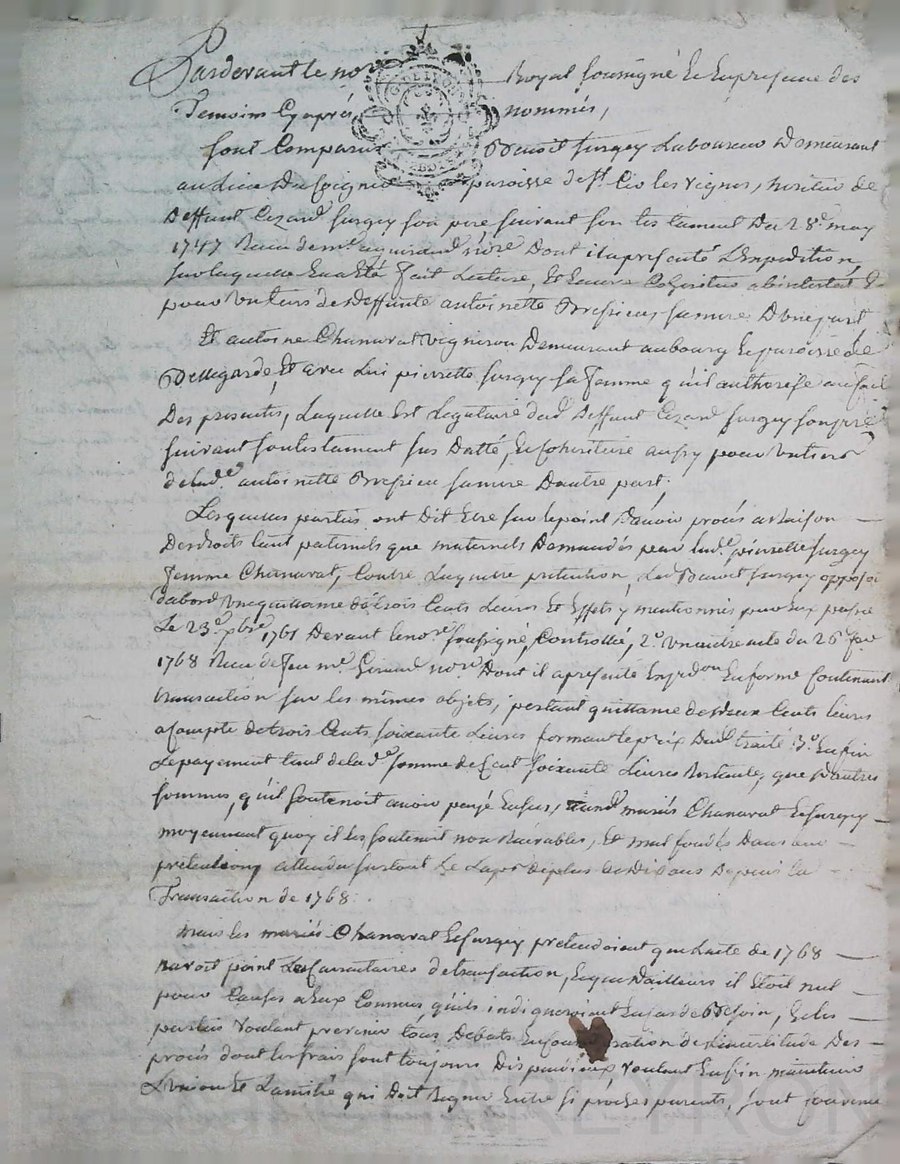 Pardevant le no.re Royal soussigné Et En presence des
Temoins Cyaprés nommés,
sont Comparus Benoit surgey Laboureur Demeurant
au Lieu Du paroisse de st. Cir les vignes, heritier de
Deffunt Cezard surgey son pere suivant son testament Du 28e. may
1747 Recu de me. no.re Dont il a presenté L'Expedition
sur laquelle En a Eté fait Lecture, Et Encore Coheritier abintestat &
pour un tiers de Deffunte antoinette sa mere D'une part
Et antoine Chanavat vigneron Demeurant au bourg Et paroisse de
Bellegarde, Et avec Lui pierrette surgey sa femme qu'il authorise au fait
Des presentes, Laquelle Est Legataire dud. Deffunt Cezard surgey son pere
suivant son testament sus Datté, Et Coheritiere aussy pour un tiers
de lad.e antoinette sa mere D'autre part;
Lesquelles parties ont Dit Etre sur le point D'avoir procés a Raison
Des droits tant paternels que maternels Demandés par lad.e pierrette surgey
femme Chanavat, Contre Laquelle pretention, Led. Benoit surgey opposoit
d'abord une quittance de trois Cents Livres Et Effets y mentionnés par Eux passée
Le 23e. xbre 1761 Devant le no.re soussigné, Controllée, 2o. un autre acte du 26e.
1768 Recu de feu me. no.re Dont il a presenté Expd.on En forme Contenant
transaction sur les mêmes objets, portant quittance de deux Cents livres
a Compte de trois Cents soixante Livres formant le prix Dud. traité 3o. Enfin
Le payement tant de lad.e somme de Cent soixante Livres Restante, que d'autres
sommes, qu'il soutenoit avoir payé En sus, mariés Chanavat Et surgey
moyennant quoy il les soutenoit non Recevables, Et mal fondés Dans leur
pretentions attendu surtout Le Laps de plus de Dix ans Depuis la
Transaction de 1768.
mais les mariés Chanavat Et surgey pretendoient que L'acte de 1768
n'avoit point Les Caracteres de transaction, Et que D'ailleurs il Etoit nul
pour Causes a Eux Connues, qu'ils indiqueroient En Cas de Besoin, Et les
parties voulant prevenir tous Debats En Consideration de L'incertitude Des
procés dont les frais sont toujours Dispendieux voulant Enfin maintenir
L'union Et L'amitié qui Doit Regner Entre si proches parents, sont Convenus